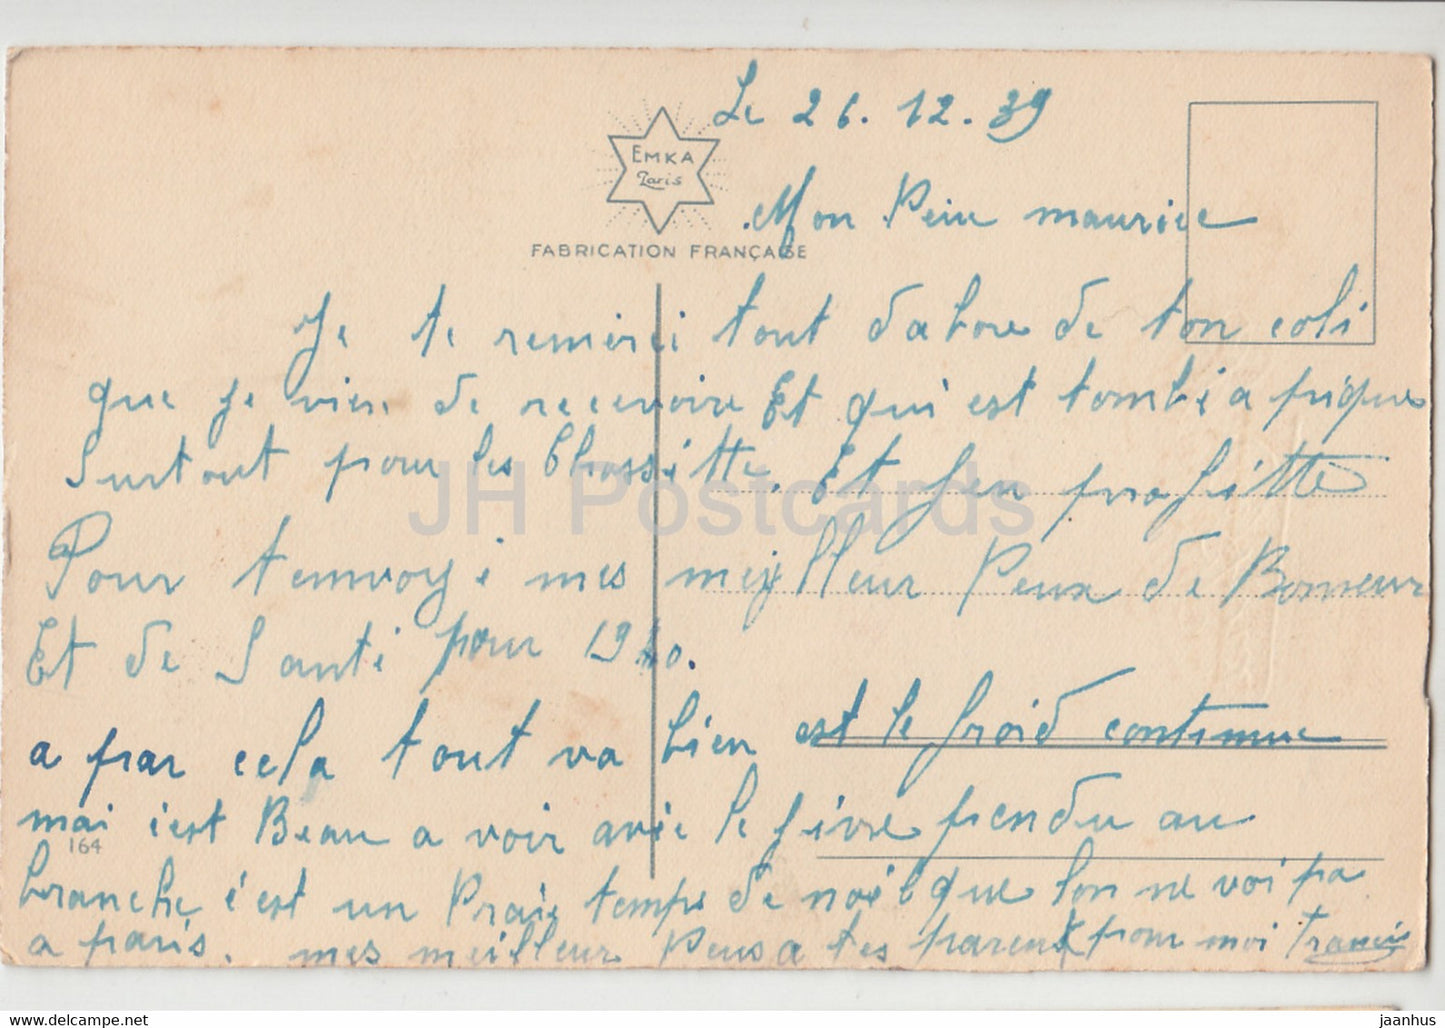 Le 26.12.39
EMKA
Paris
FABRICATION FRANÇAISE
Mon Peiu maurice
Je te remerci tout dabore de ton coli
que je vien de recevoire Et qui est tombé a pique
Surtout pour les Chossette. Et jen profitte
Pour tenvoyé mes meilleur Peux de Bonneur
Et de Santé pour 1940.
a par cela tout va bien est le froid continue
mai c'est Beau a voir avec le givre pendu au
164
branche c'est un Praie temps de noël que lon ne voi pa
a paris. mes meilleur Peus a tes parent pour moi Francis
JH Postcards
jaanhus.com